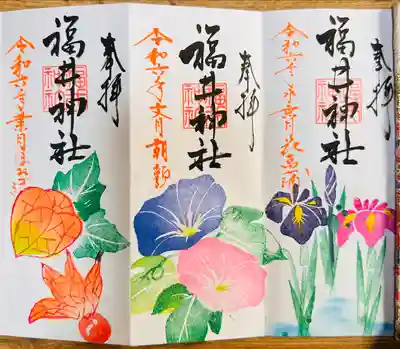 奉拝
福井神社
令和六年 月 花菖蒲
奉拝
福井神社
令和六年文月 朝顔
奉拝
福井神社
令和六年葉月